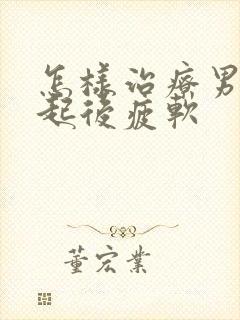 怎樣治療男
起後疲軟
董宏業